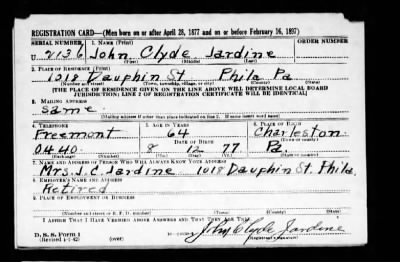 REGISTRATION CARD—(Men born on or after April 28, 1877 and on or before February 16, 1897)
SERIAL NUMBER 1. NAME (Print) ORDER NUMBER
U 2136 John Clyde Jardine
(First) (Middle) (Last)
2. PLACE OF RESIDENCE (Print)
1018 Dauphin St Phila Pa
(Number and street) (Town, township, village, or city) (County) (State)
[THE PLACE OF RESIDENCE GIVEN ON THE LINE ABOVE WILL DETERMINE LOCAL BOARD
JURISDICTION; LINE 2 OF REGISTRATION CERTIFICATE WILL BE IDENTICAL]
3. MAILING ADDRESS
Same
[Mailing address if other than place indicated on line 2. If same insert word same]
4. TELEPHONE 5. AGE IN YEARS 6. PLACE OF BIRTH
Freemont 64 Charleston
DATE OF BIRTH (Town or county)
0440 8 12 77 Pa.
(Exchange) (Number) (Mo.) (Day) (Yr.) (State or country)
7. NAME AND ADDRESS OF PERSON WHO WILL ALWAYS KNOW YOUR ADDRESS
Mrs. J. C. Jardine 1018 Dauphin St. Phila.
8. EMPLOYER'S NAME AND ADDRESS
Retired
9. PLACE OF EMPLOYMENT OR BUSINESS
(Number and street or R. F. D. number) (Town) (County) (State)
I AFFIRM THAT I HAVE VERIFIED ABOVE ANSWERS AND THAT THEY ARE TRUE.
D. S. S. Form 1
(Revised 4-1-42) (over) John Clyde Jardine
(Registrant's signature)